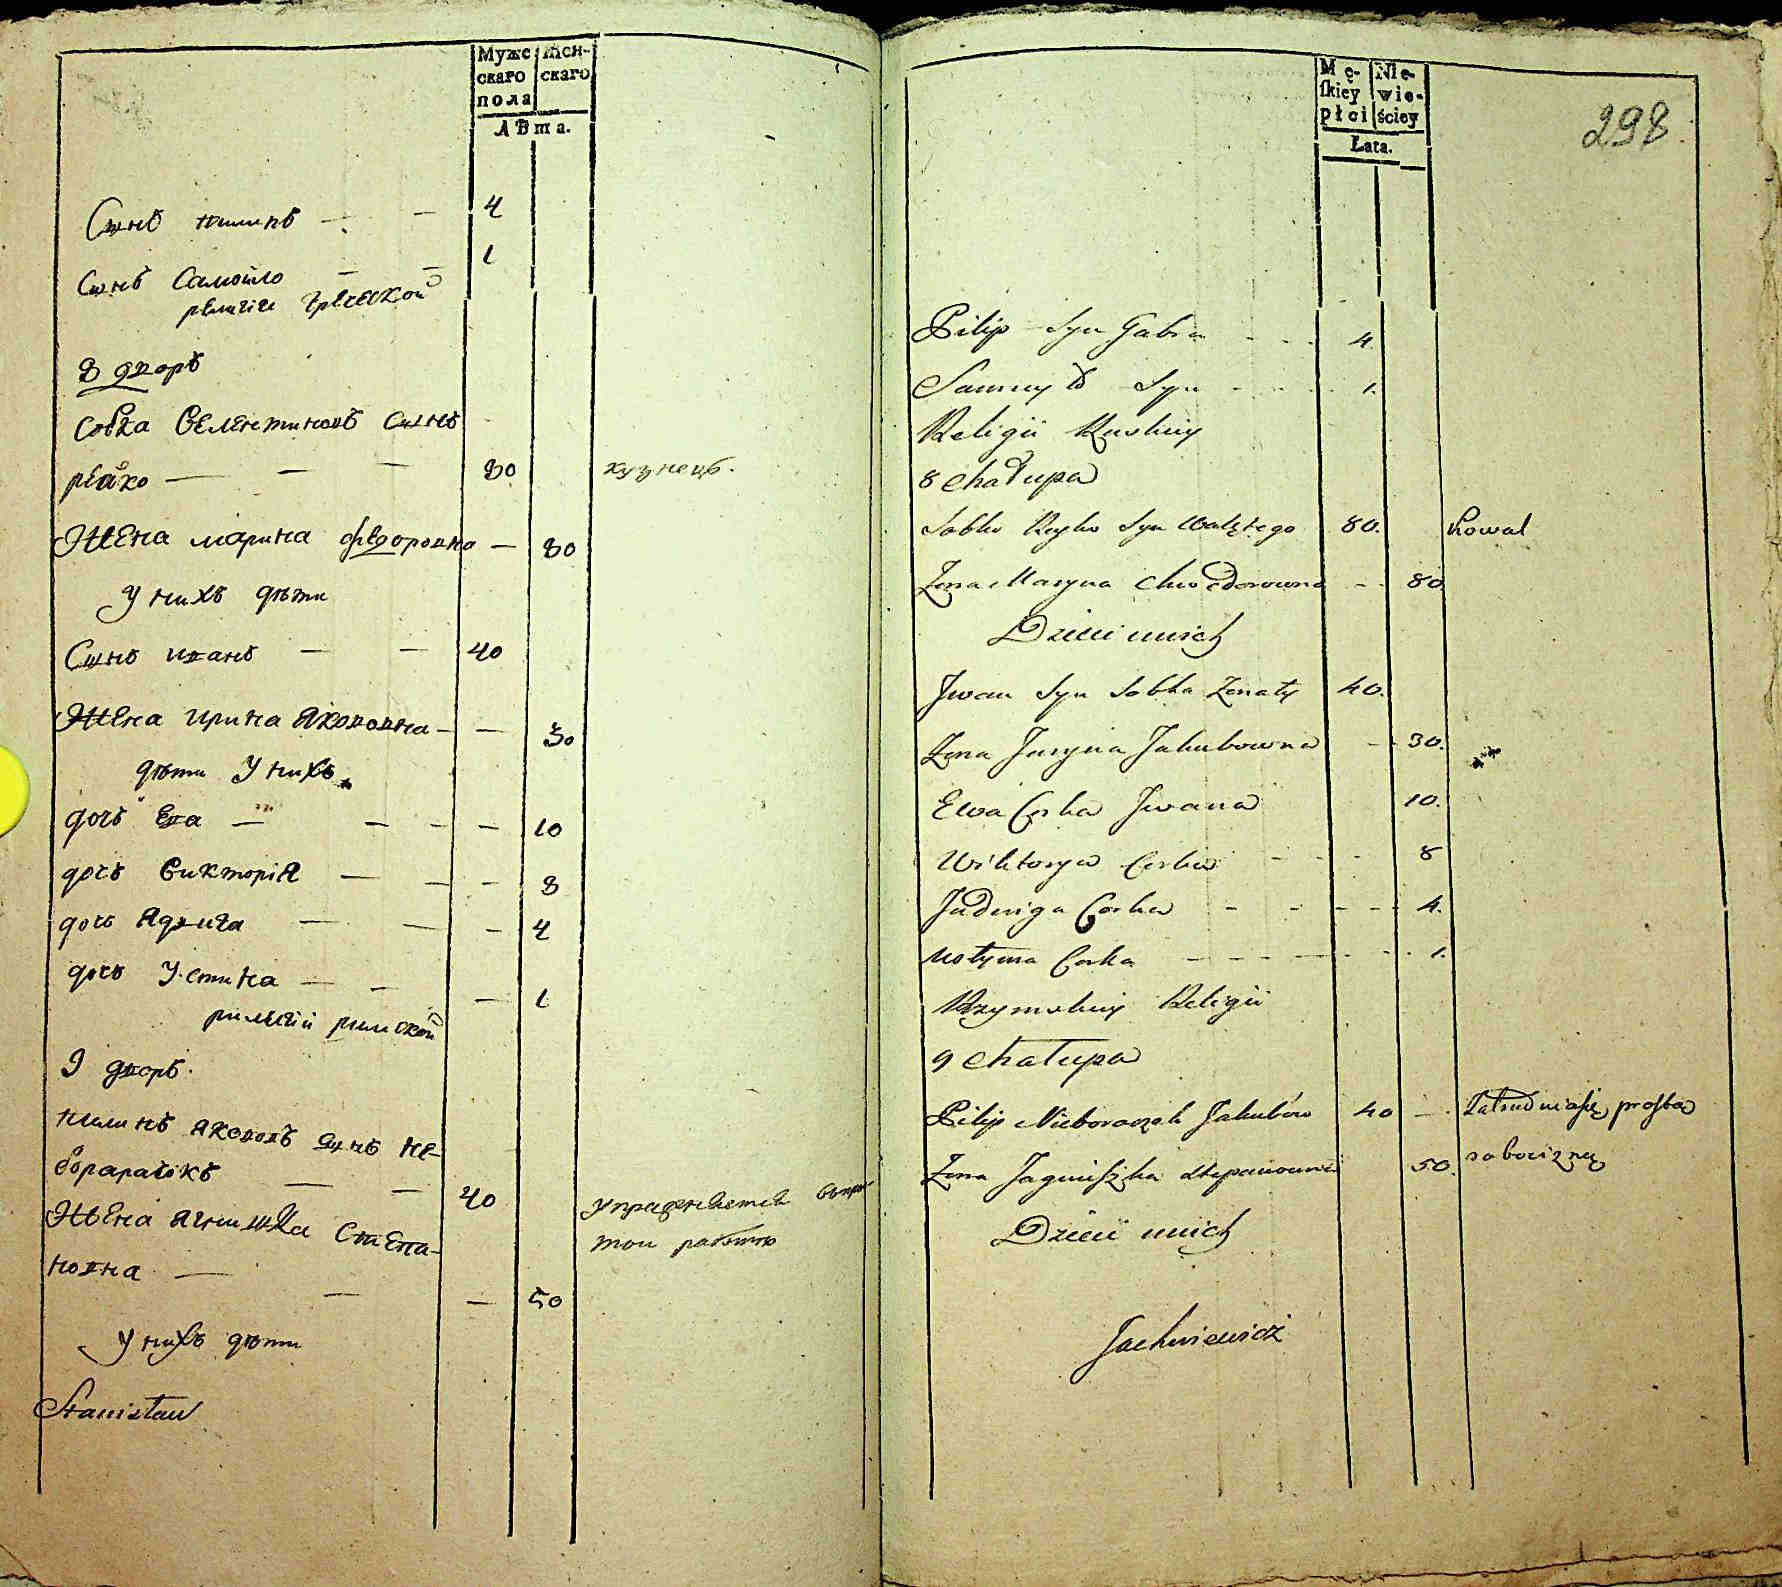 Муже
скаго
пола
Жен-
скаго
ЛѢта.
Сынъ пилипъ — — 4
Сынъ Самойло — — 1
религіи греческой
8 дворъ
Собка Велентиновъ Сынъ
рейко — — — 80 кузнецъ.
Жена марина федоровна — 80
У нихъ дѣти
Сынъ иванъ — — 40
Жена ирина Якововна — — 30
дѣти У нихъ
дочь Ева — — — — 10
дочь Викторія — — — 8
дочь Ядвига — — — 4
дочь Устина — — — 1
рилигіи римской
9 дворъ.
пилипъ Якововъ сынъ не-
борарачокъ — — 40
упражняется въпрос
той работою
Жена Ягнишка Степа-
новна — — — 50
У нихъ дѣти
Stanisław
Mę-
skiey
płci
Nie-
wie-
ściey
Lata.
298
Pilip Syn Gabra - - - 4.
Samuyło Syn - - - 1.
Religii Ruskiey
8 chałupa
Sobko Reyko Syn Walętego 80. Kowal
Zona Maryna Chwedorowna - - 80
Dzieci unich
Jwan Syn Sobka Zonaty 40.
Zona Jaryna Jakubowna - - 30.
Ewa Corka Jwana 10.
Wiktorya Corka - - - 8
Jadwiga Corka - - - - - 4.
Corka - - - - - - - 1.
Rzymskiey Religii
9 chałupa
Pilip Nieboraczek Jakubów 40 - Zatrudniasię prostą
robocizną
Zona Jagniszka Stepanowna 50.
Dzieci unich
Jachniewicz